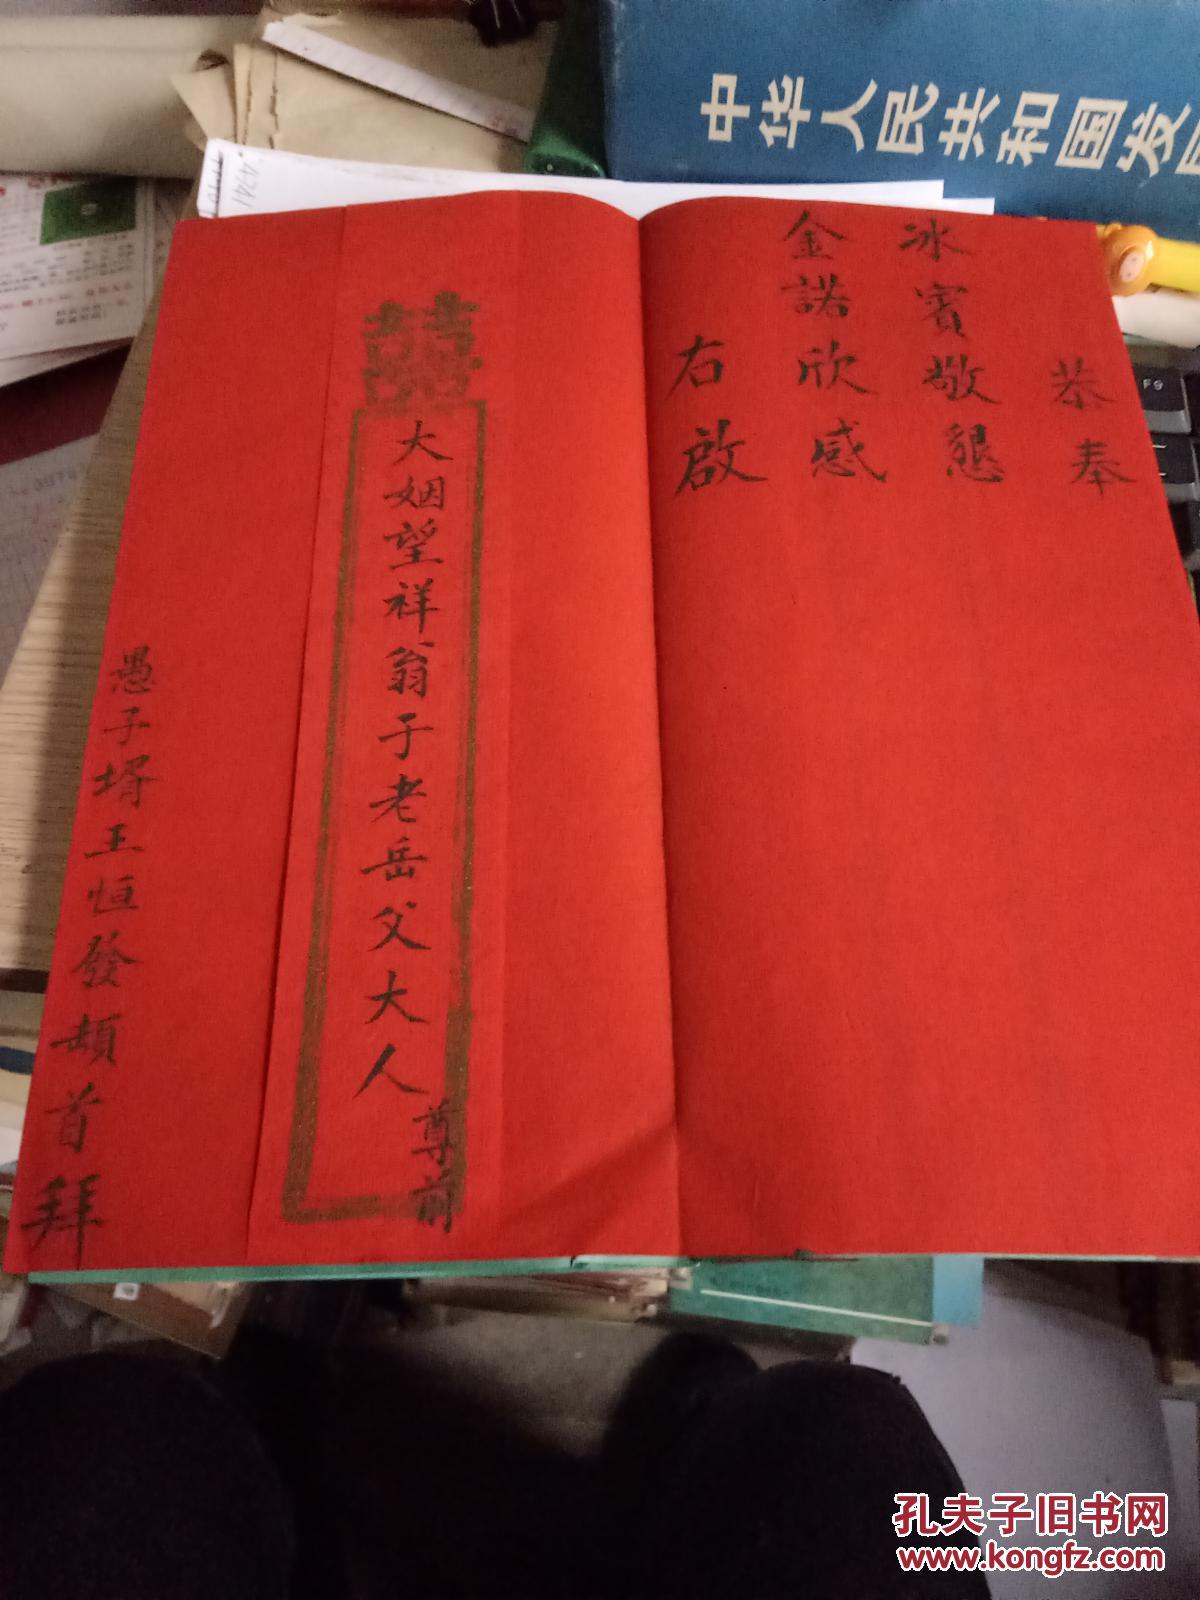 中华人民共和国发
恭奉
冰賓敬懇
金諾欣感
右啟
囍
大姻望祥翁于老岳父大人
尊前
愚子壻王恒發頓首拜
F9
孔夫子旧书网
www.kongfz.com